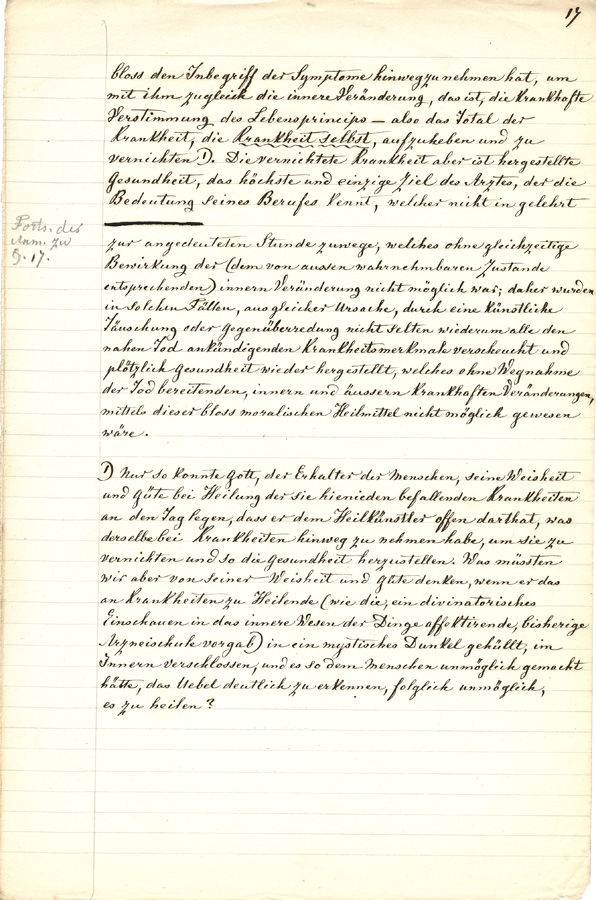 17
bloss den Inbegriff der Symptome hinwegzunehmen hat, um
mit ihm zugleich die innere Veränderung, das ist, die krankhafte
Verstimmung des Lebensprincips — also das Total der
Krankheit, die Krankheit selbst, aufzuheben und zu
vernichten 1). Die vernichtete Krankheit aber ist hergestellte
Gesundheit, das höchste und einzige Ziel des Arztes, der die
Bedeutung seines Berufes kennt, welcher nicht in gelehrt
Forts. der
Anm. zu
§. 17.
zur angedeuteten Stunde zuwege, welches ohne gleichzeitige
Bewirkung der (dem von aussen wahrnehmbaren Zustande
entsprechenden) innern Veränderung nicht möglich war; daher wurden
in solchen Fällen, aus gleicher Ursache, durch eine künstliche
Täuschung oder Gegenüberredung nicht selten wiederum alle den
nahen Tod ankündigenden Krankheitsmerkmale verscheucht und
plötzlich Gesundheit wieder hergestellt, welches ohne Wegnahme
der Tod bereitenden, innern und äussern krankhaften Veränderungen,
mittels dieser bloss moralischen Heilmittel nicht möglich gewesen
wäre.
1) Nur so konnte Gott, der Erhalter der Menschen, seine Weisheit
und Güte bei Heilung der sie hienieden befallenden Krankheiten
an den Tag legen, dass er dem Heilkünstler offen darthat, was
derselbe bei Krankheiten hinweg zu nehmen habe, um sie zu
vernichten und so die Gesundheit herzustellen. Was müssten
wir aber von seiner Weisheit und Güte denken, wenn er das
an Krankheiten zu Heilende (wie die, ein divinatorisches
Einschauen in das innere Wesen der Dinge affektirende, bisherige
Arzneischule vorgab) in ein mystisches Dunkel gehüllt, im
Innern verschlossen, und es so dem Menschen unmöglich gemacht
hätte, das Uebel deutlich zu erkennen, folglich unmöglich,
es zu heilen?